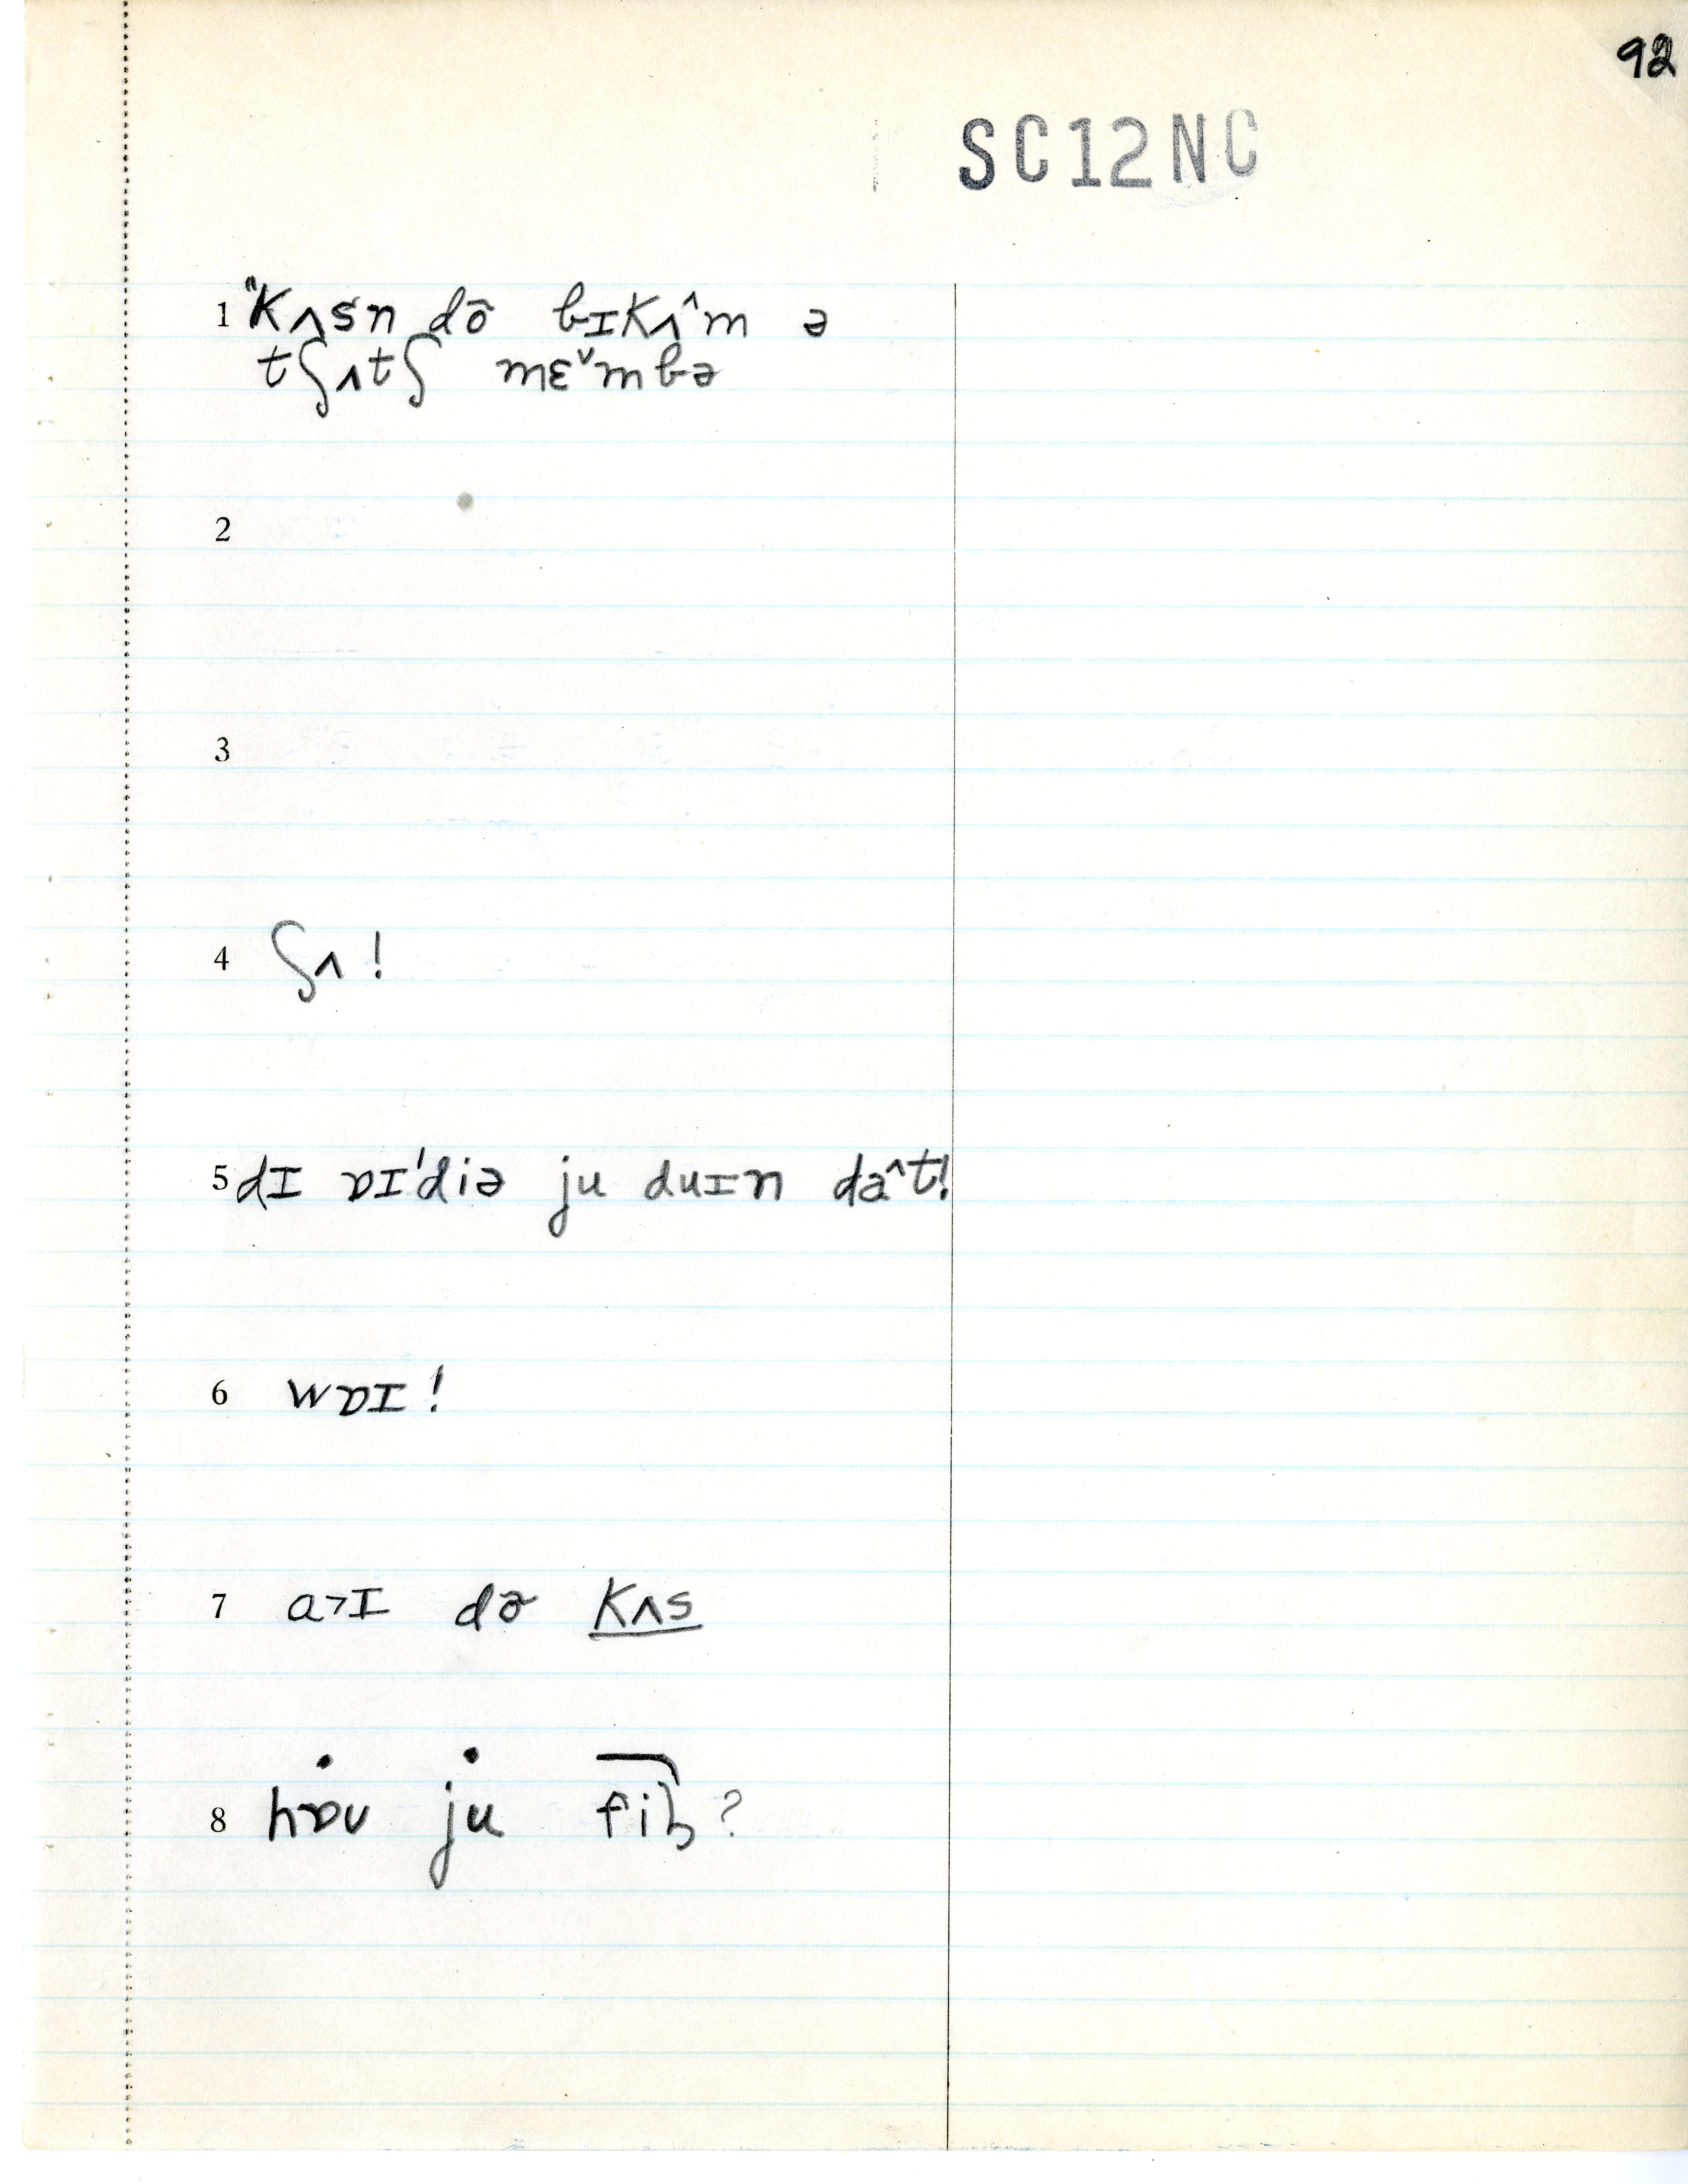 92
SC12NC
1 "Kʌsn dō bɪKʌ^m ə
tʃʌtʃ mɛˇmbə
2
3
4 ʃʌ!
5 dɪ ɒɪ'diə ju duɪn də^t!
6 wɒɪ!
7 a>ɪ də Kʌs
8 hɒu ju fiḷ?